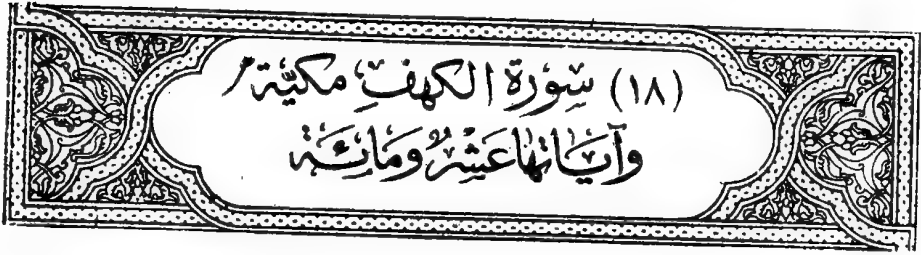 (١٨) سِوُرَة الكهفِ مكيَّة
وَآيَاتهَا عَشِرٌ وَمَائِة